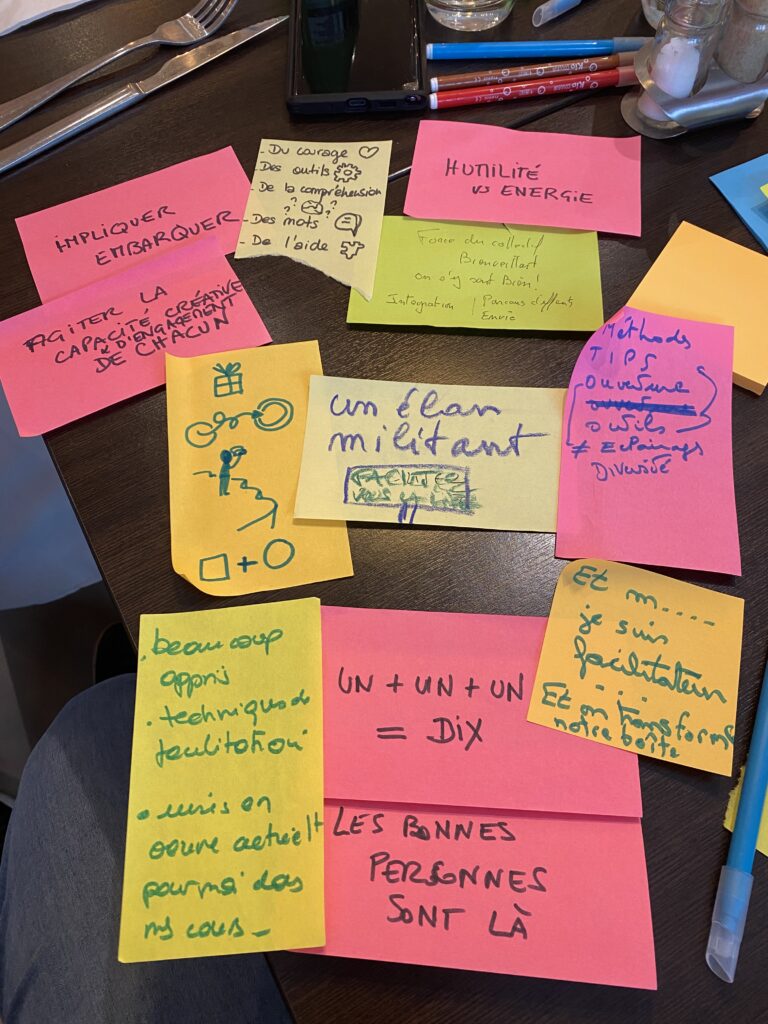 - Du courage
- Des outils
- De la compréhension
- Des mots
- De l'aide
HUMILITÉ
VS ENERGIE
IMPLIQUER
EMBARQUER
Force du collectif
Bienveillant
on s'y sent Bien!
Integration
Parcours différents
Envie
AGITER LA
CAPACITÉ CRÉATIVE
& D'ENGAGEMENT
DE CHACUN
Méthodes
TIPS
ouverture
outils
≠ Eclairages
Diversité
un élan
militant
FACILITER
+
Et m....
je suis
facilitateur
....
Et on transforme
notre boîte
. beaucoup
appris
. techniques de
facilitation
. mis en
oeuvre
pour moi dans
mes cours_
UN + UN + UN
= DIX
LES BONNES
PERSONNES
SONT LÀ